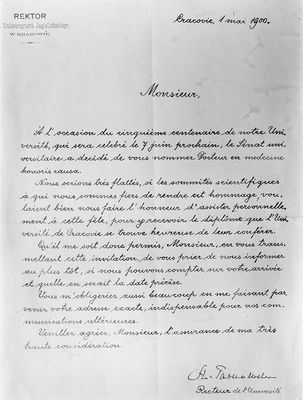 REKTOR
Uniwersytetu Jagiellońskiego
W KRAKOWIE.
Cracovie, 1 mai 1900.
Monsieur,
A l'occasion du cinquième centenaire de notre Uni
versité, qui sera celebré le 7 juin prochain, le Sénat uni
versitaire a decidé de vous nommer Docteur en medecine
honoris causa.
Nous serions très flattés, si les sommités scientifiques
à qui nous sommes fiers de rendre cet hommage, vou
laient bien nous faire l'honneur d'assister personnelle
ment à cette fête, pour y recevoir le diplôme que l'Uni
versité de Cracovie se trouve heureuse de leur conférer.
Qu'il me soit donc permis, Monsieur, en vous trans
mettant cette invitation, de vous prier de nous informer
au plus tôt, si nous pouvons compter sur votre arrivée
et quelle en serait la date précise.
Vous m'obligeriez aussi beaucoup en me faisant par
venir votre adresse exacte, indispensable pour nos com
munications ultérieures.
Veuillez agréer, Monsieur, l'assurance de ma très
haute considération.
Recteur de l'Université